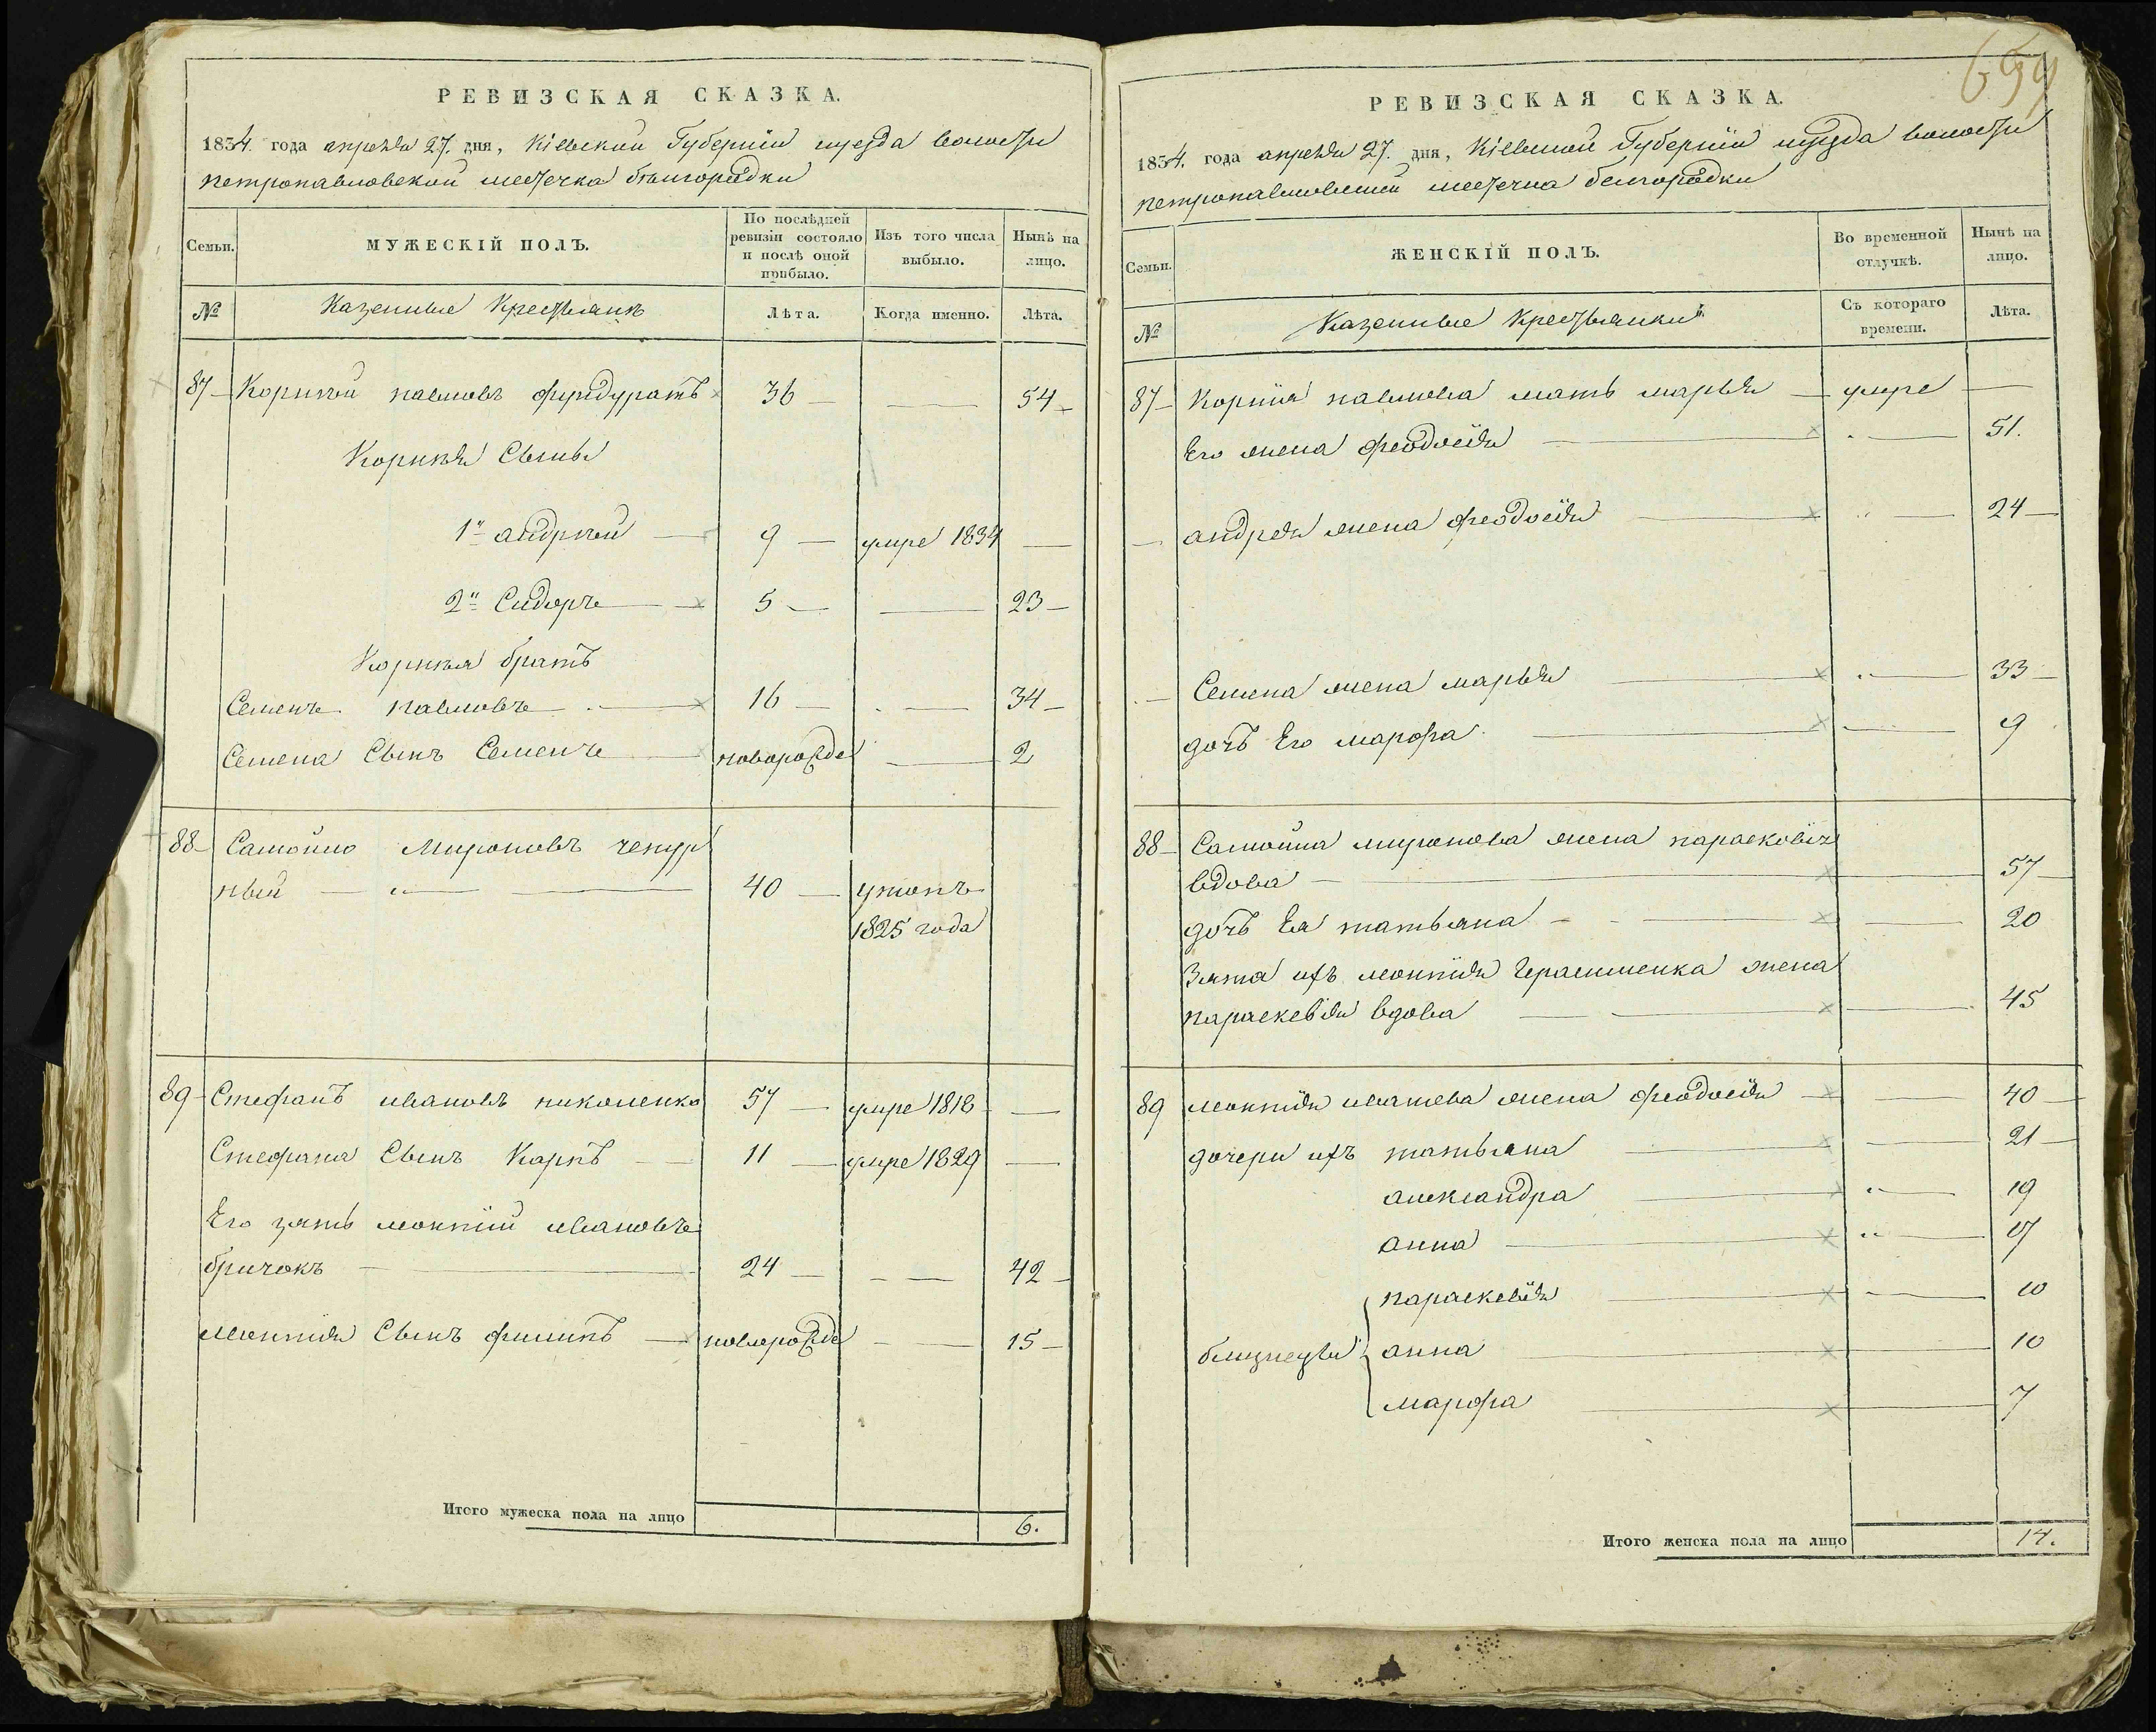 РЕВИЗСКАЯ СКАЗКА.
1834. года апреля 27. дня, Кіевской Губерніи уезда волости
петропавловской местечка бѣлгородки
Семьи. МУЖЕСКІЙ ПОЛЪ. По послѣдней ревизіи состояло и послѣ оной прибыло. Изъ того числа выбыло. Нынѣ на лицо.
№ Казенные Крестьянѣ Лѣта. Когда именно. Лѣта.
87 Корнѣй павловъ 36 54
Корнѣя Сыны
1й андрѣй 9 умре 1834
2й Сидоръ 5 23
Корнѣя братъ
Семенъ павловъ 16 34
Семена Сынъ Семенъ новорожде 2
88 Самойло Мироновъ чепур
ный 40 утопъ
1825 года
89 Стефанъ ивановъ николенко 57 умре 1818
Стефана Сынъ Карпъ 11 умре 1829
Его зять леонтій ивановъ
бричокъ 24 42
леонтія Сынъ филипъ новорожде 15
Итого мужеска пола на лицо 6.
699
РЕВИЗСКАЯ СКАЗКА.
1834. года апреля 27. дня, Кіевской Губерніи уезда волости
петропавловской местечка белгородки
Семьи. ЖЕНСКІЙ ПОЛЪ. Во временной отлучкѣ. Нынѣ на лицо.
№ Казенные Крестьянки Съ котораго времени. Лѣта.
87 Корнія павлова мать марья умре
Его жена феодосія 51.
андрея жена феодосія 24
Семена жена марья 33
дочь Его марфа 9
88 Самойла миронова жена
вдова 57
дочь Ея татьяна 20
Зятя ихъ леонтія Герасименка жена
параскевія вдова 45
89 леонтія жена феодосія 40
дочери ихъ татьяна 21
александра 19
анна 17
параскевія 10
близнецы анна 10
марфа 7
Итого женска пола на лицо 14.